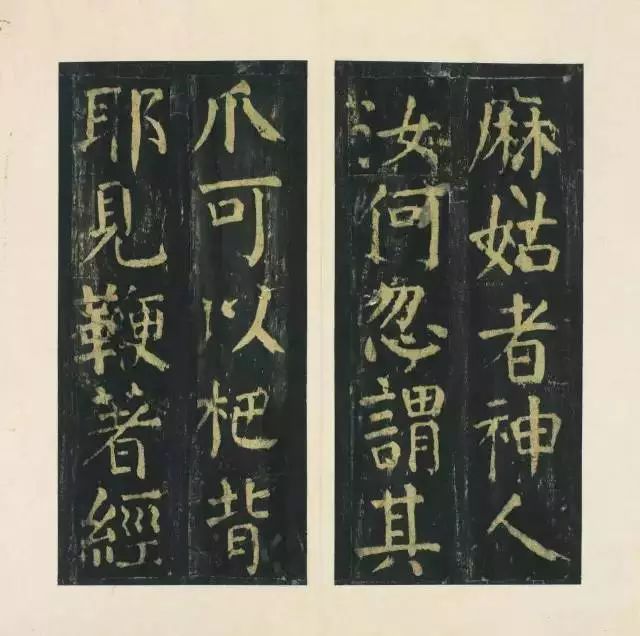 麻姑者神人
汝何忽謂其
爪可以杷背
耶見鞭著經